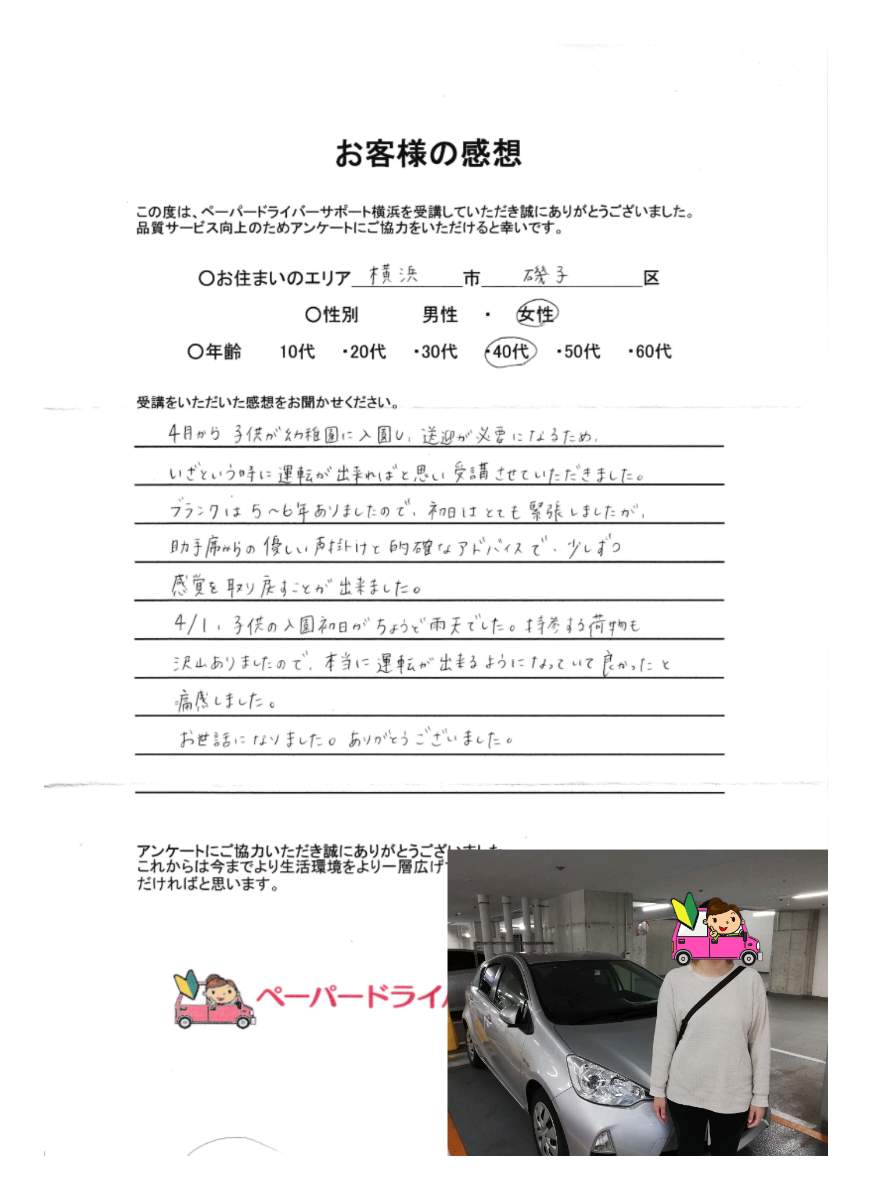 お客様の感想
この度は、ペーパードライバーサポート横浜を受講していただき誠にありがとうございました。
品質サービス向上のためアンケートにご協力をいただけると幸いです。
〇お住まいのエリア 横浜 市 磯子 区
〇性別 男性 ・ 女性
〇年齢 10代 ・20代 ・30代 ・40代 ・50代 ・60代
受講をいただいた感想をお聞かせください。
4月から 子供が幼稚園に入園し、送迎が必要になるため、
いざという時に運転が出来ればと思い受講させていただきました。
ブランクは5〜6年ありましたので、初日はとても緊張しましたが、
助手席からの優しい声掛けと的確なアドバイスで、少しずつ
感覚を取り戻すことが出来ました。
4/1、子供の入園初日がちょうど雨天でした。持参する荷物も
沢山ありましたので、本当に運転が出来るようになっていて良かったと
痛感しました。
お世話になりました。ありがとうございました。
アンケートにご協力いただき誠にありがとうございました
これからは今までより生活環境をより一層広げ
だければと思います。
ペーパードライ